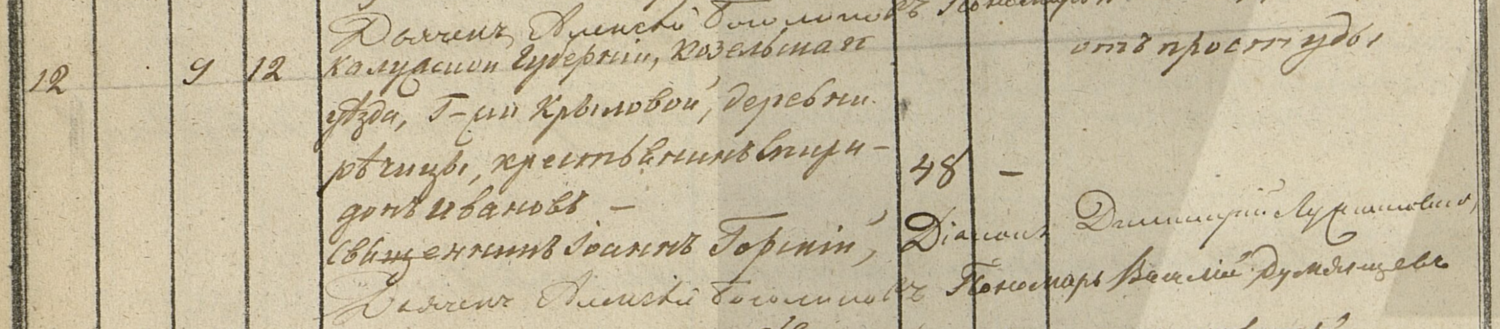 Дьячекъ Алексѣй Пономарь
12 9 12 Калужской Губерніи, Козельскаго отъ простуды
уѣзда, Г-жи Крыловой, деревни
рѣчицы, крестьянинъ Спири-
донъ Ивановъ – 48 –
Священникъ Іоаннъ Горскій, Діаконъ Димитрій
Дьячекъ Алексѣй Пономарь Василій Румянцевъ